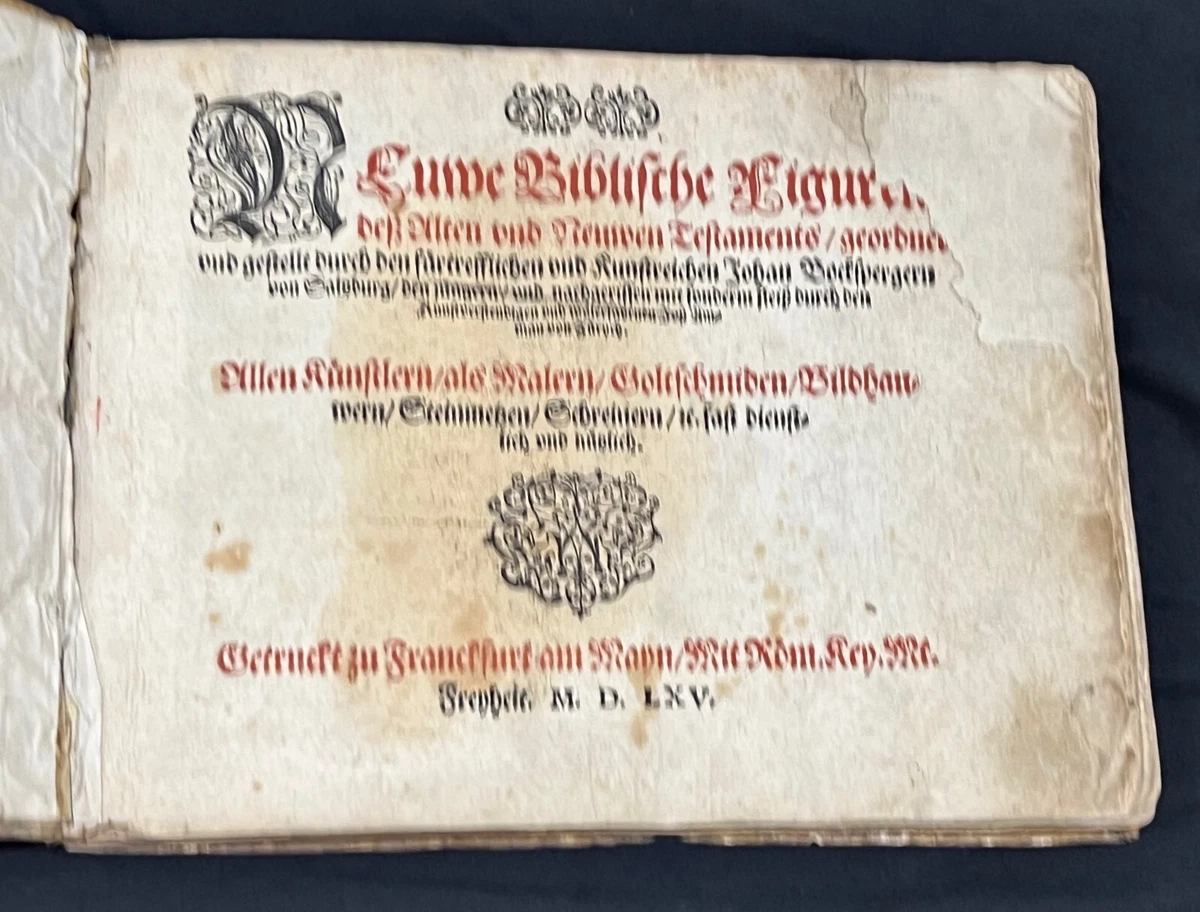 NEuwe Biblische Figuren
deß Alten vnd Neuwen Testaments / geordnet
vnd gestellt durch den fürtrefflichen vnd Kunstreichen Johan Bockspergern
von Saltzburg / den jüngern / vnd nachgerissen mit sonderm fleiß durch den
Kunstverstendigen vnd wolerfahrnen Joß Am-
man von Zürych.
Allen Künstlern / als Malern / Goltschmiden / Bildhau-
wern / Steinmetzen / Schreinern / ꝛc. fast dienst-
lich vnd nützlich.
Getruckt zu Franckfurt am Mayn / Mit Röm. Key. Mt.
Freyheit. M. D. LXV.